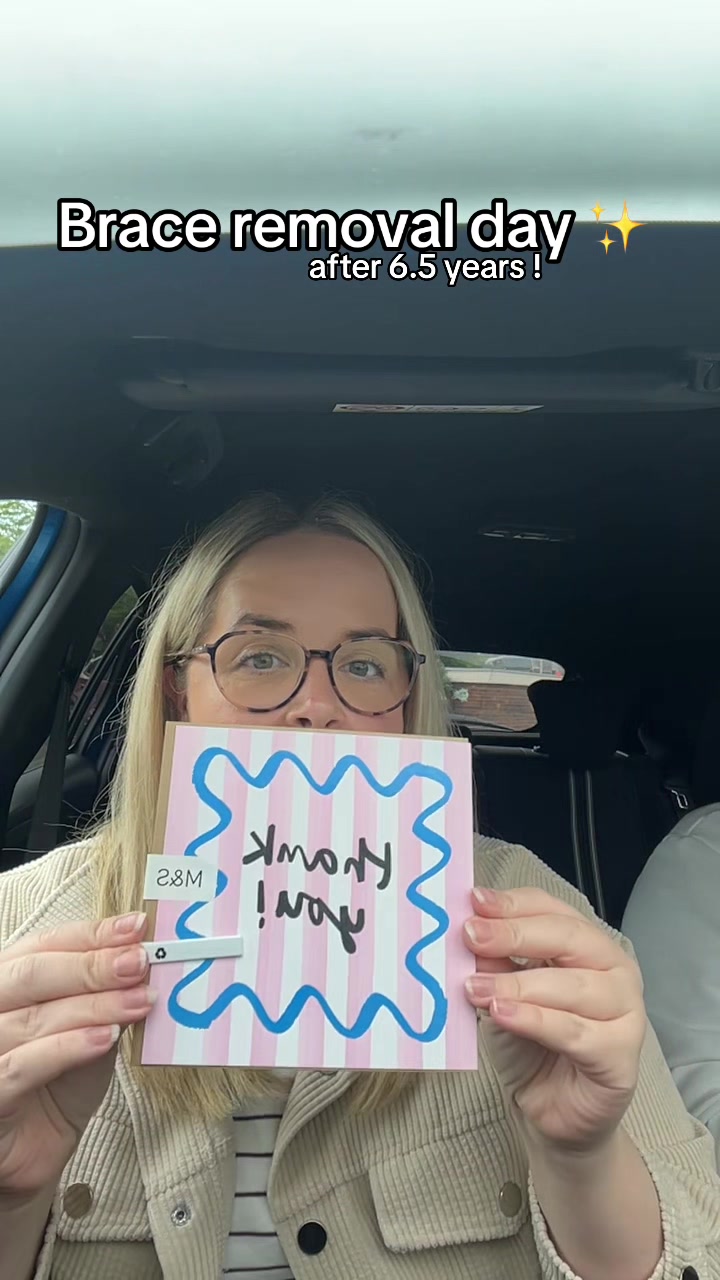 Brace removal day ✨
after 6.5 years !
thank
you!
M&S